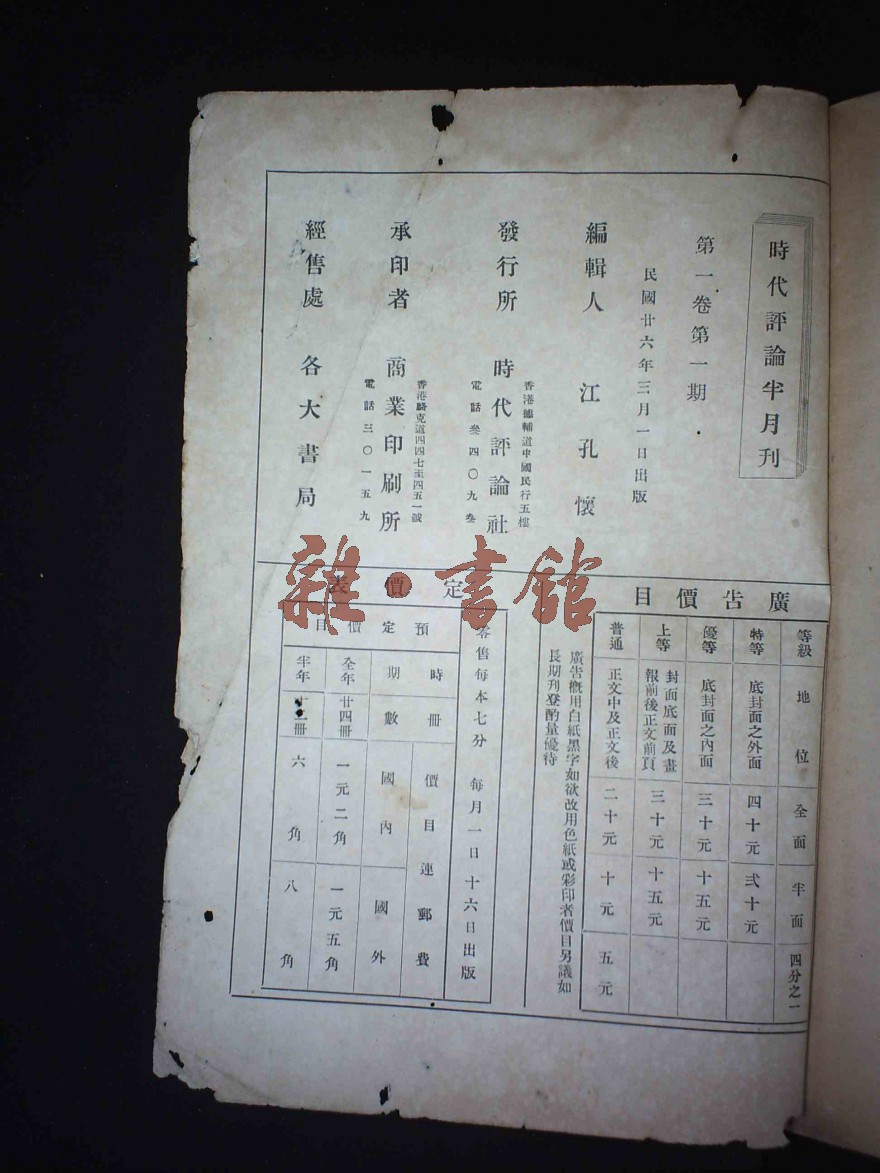 時代評論半月刊
第一卷第一期
民國廿六年三月一日出版
編輯人 江孔懷
發行所 時代評論社
香港德輔道中國民行五樓
電話叁四〇九叁
承印者 商業印刷所
香港駱克道四四七至四五一號
電話三〇一五九
經售處 各大書局
廣告價目
等級 地位 全面 半面 四分之一
特等 底封面之外面 四十元 弍十元
優等 底封面之內面 三十元 十五元
上等 封面底面及畫報前後正文前頁 三十元 十五元
普通 正文中及正文後 二十元 十元 五元
廣告概用白紙黑字如欲改用色紙或彩印者價目另議如
長期刊登酌量優待
定價表
零售每本七分 每月一日十六日出版
預定價目
時期 冊數 價目連郵費
國內 國外
全年 廿四冊 一元二角 一元五角
半年 十二冊 六角 八角
雜·書館